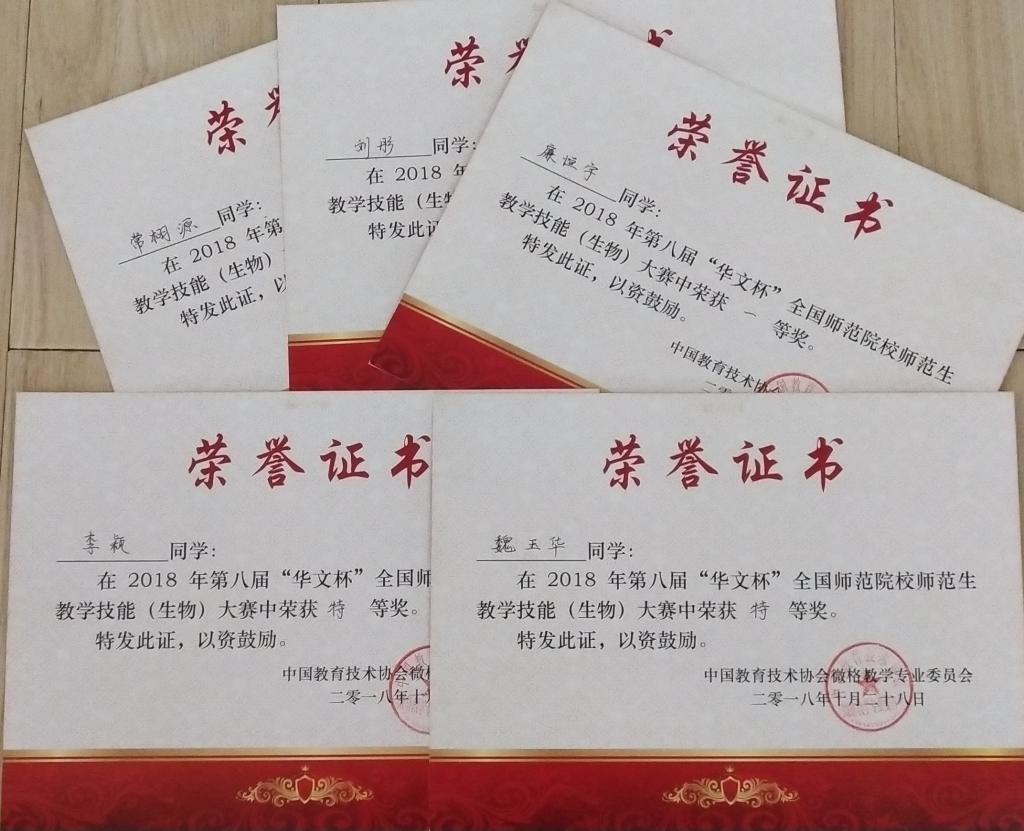 荣
常栩源 同学:
在 2018 年第
教学技能（生物）
特发此证，以
荣誉
刘彤 同学:
在 2018 年
教学技能（生物
特发此证
荣誉证书
廉恒宇 同学:
在 2018 年第八届“华文杯”全国师范院校师范生
教学技能（生物）大赛中荣获 一 等奖。
特发此证，以资鼓励。
中国教育技术协会
二零
荣誉证书
李颖 同学:
在 2018 年第八届“华文杯”全国师
教学技能（生物）大赛中荣获 特 等奖。
特发此证，以资鼓励。
中国教育技术协会微格
二零一八年十
荣誉证书
魏玉华 同学:
在 2018 年第八届“华文杯”全国师范院校师范生
教学技能（生物）大赛中荣获 特 等奖。
特发此证，以资鼓励。
中国教育技术协会微格教学专业委员会
二零一八年十月二十八日